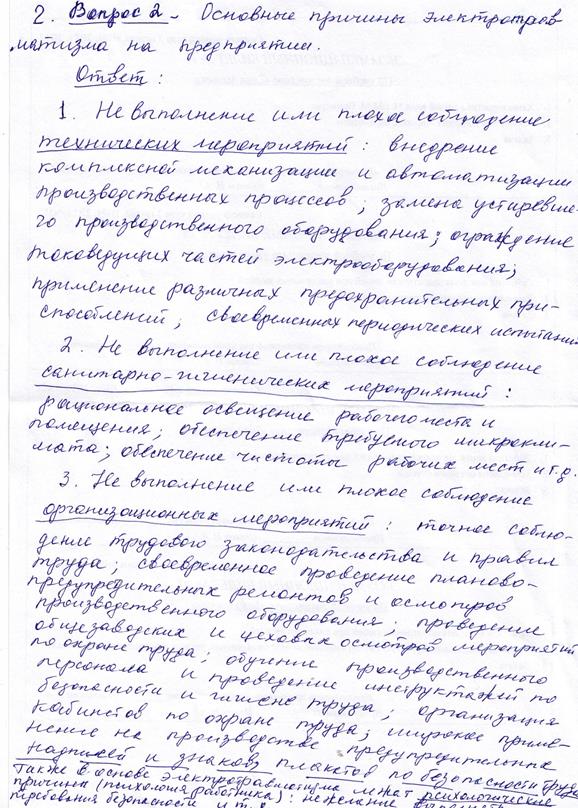 2. Вопрос 2 - Основные причины электротрав
матизма на предприятии.
Ответ:
1. Не выполнение или плохое соблюдение
технических мероприятий: внедрение
комплексной механизации и автоматизации
производственных процессов; замена устаревше-
го производственного оборудования; ограждение
токоведущих частей электрооборудования;
применение различных предохранительных при-
способлений; своевременных периодических испытаний
2. Не выполнение или плохое соблюдение
санитарно-гигиенических мероприятий:
рациональное освещение рабочего места и
помещения; обеспечение требуемого микрокли-
мата; обеспечение чистоты рабочих мест и т.д.
3. Не выполнение или плохое соблюдение
организационных мероприятий: точное соблю-
дение трудового законодательства и правил
труда; своевременное проведение планово-
предупредительных ремонтов и осмотров
производственного оборудования; проведение
общезаводских и цеховых осмотров мероприятий
по охране труда; обучение производственного
персонала и проведение инструктажей по
безопасности и гигиене труда; организация
кабинетов по охране труда; широкое приме-
нение на производстве предупредительных
надписей и знаков, плакатов по безопасности труда
Также в основе электротравматизма лежат психологические
причины (психология работника): нежелание
требования безопасности и т.д.